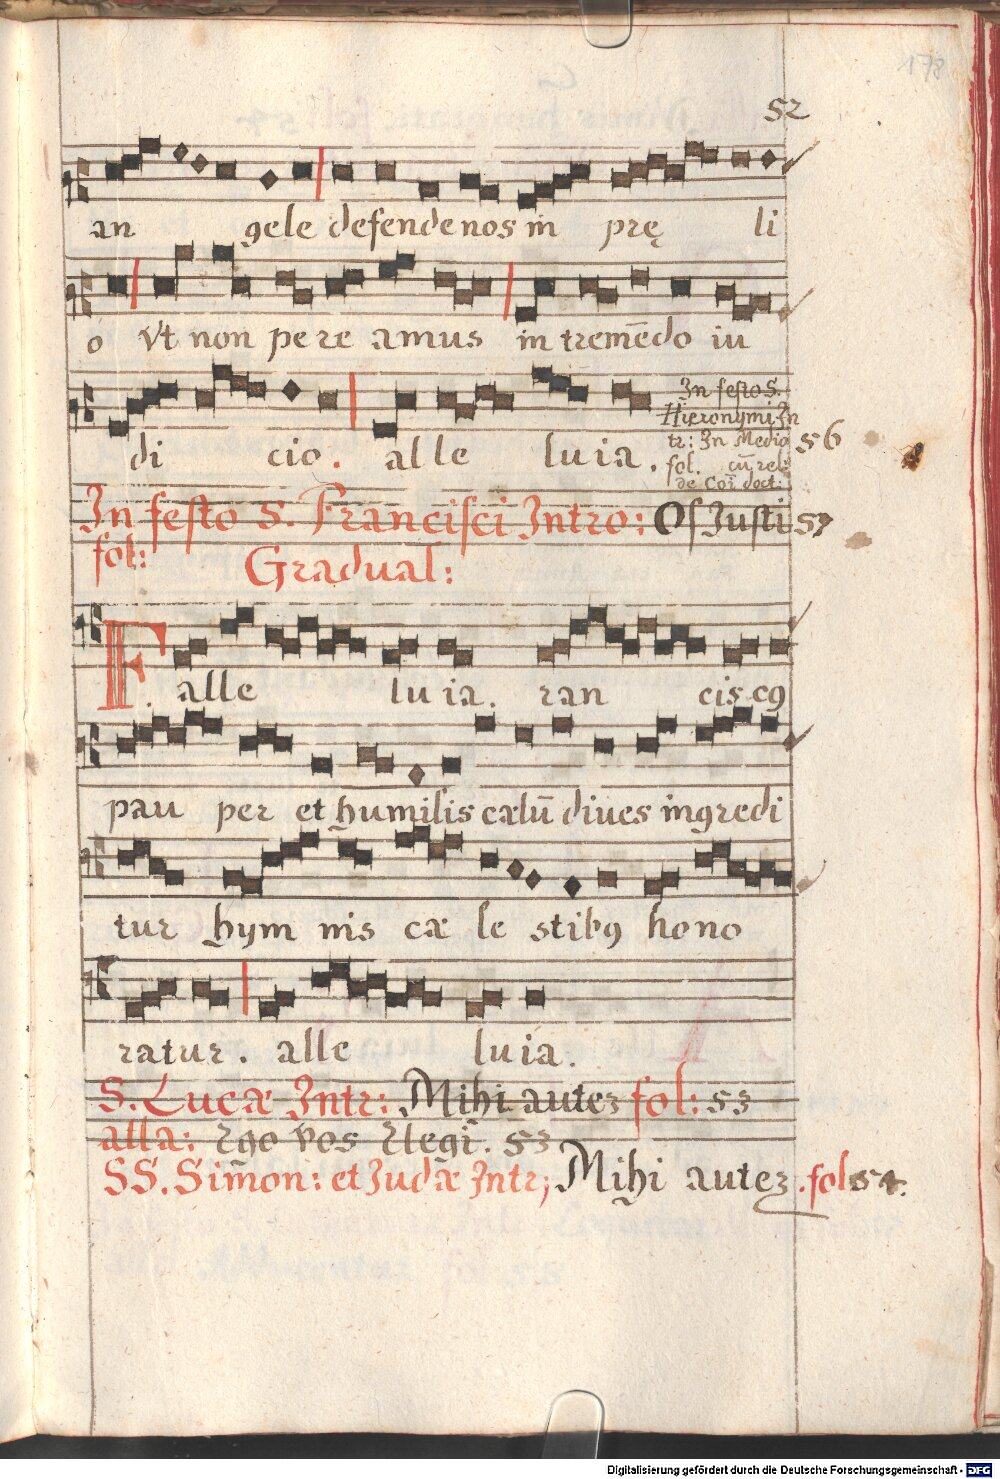 178
52
an gele defende nos in prę li
o Vt non pe re amus in tremēdo iu
di cio. alle luia.
In festo S.
Hieronymi In
tr: In Medio 56
fol. cū rel:
de Coī doct:
In festo S. Francisci Intro: Os Justi 57
fol: Gradual:
F. alle luia. ran cis cꝯ
pau per et humilis cælū diues ingredi
tur hym nis cæ le stibꝯ hono
ratur. alle luia.
S. Lucæ Intr: Mihi autez fol: 53
alla: Ego vos Elegi. 53
SS. Simon: et Judæ Intr; Mihi autez. fol 54.
Digitalisierung gefördert durch die Deutsche Forschungsgemeinschaft - DFG